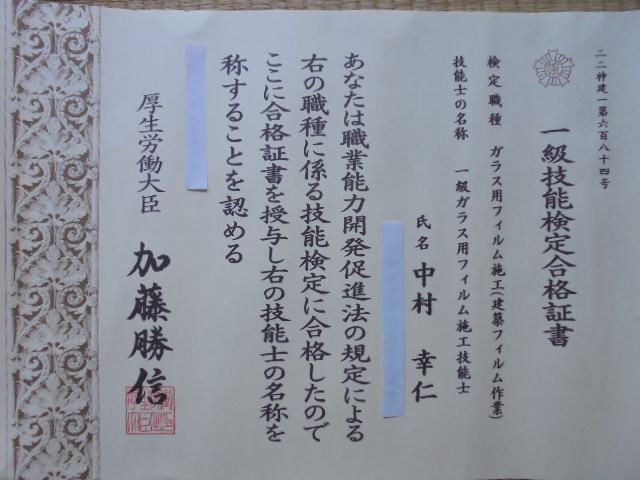 二二神建一第六百八十四号
一級技能検定合格証書
検定職種 ガラス用フィルム施工(建築フィルム作業)
技能士の名称 一級ガラス用フィルム施工技能士
氏名 中村 幸仁
あなたは職業能力開発促進法の規定による
右の職種に係る技能検定に合格したので
ここに合格証書を授与し右の技能士の名称を
称することを認める
厚生労働大臣 加藤勝信